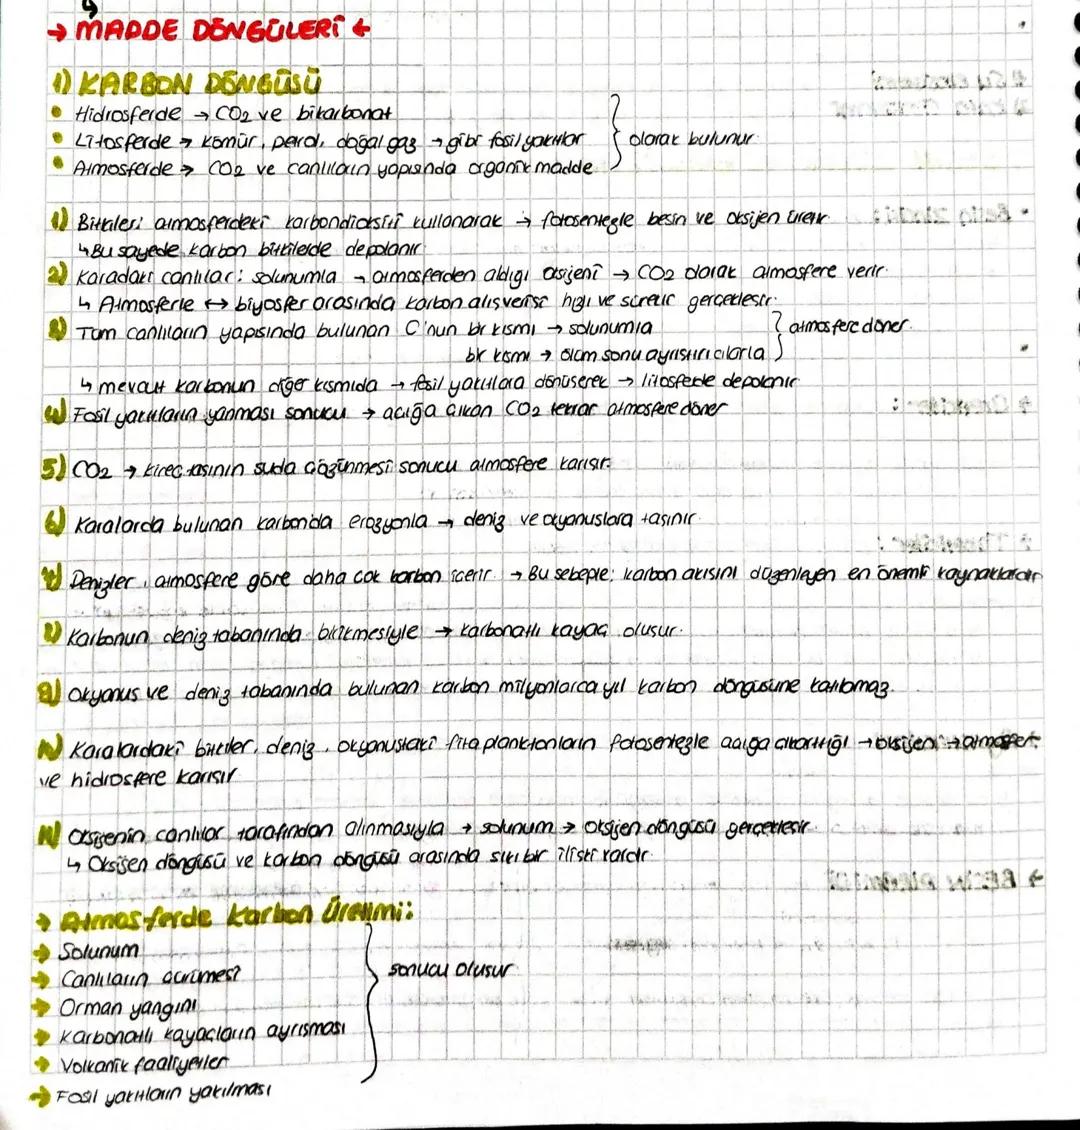 → MADDE DÖNGÜLERİ ←
1) KARBON DÖNGÜSÜ
• Hidrosferde → CO2 ve bikarbonat
• Litosferde → kömür, petrol, doğalgaz → gibi fosil yakıtlar } olarak bulunur.
• Atmosferde → CO2 ve canlıların yapısında organik madde
1) Bitkiler; atmosferdeki karbondioksiti kullanarak → fotosentezle besin ve oksijen üretir.
↳ Bu sayede karbon bitkilerde depolanır.
2) Karadaki canlılar; solunumla → atmosferden aldığı oksijeni → CO2 olarak atmosfere verir.
↳ Atmosferle ↔ biyosfer arasında karbon alışverişi hızlı ve sürekli gerçekleşir.
3) Tüm canlıların yapısında bulunan C'nun bir kısmı → solunumla } atmosfere döner.
bir kısmı → ölüm sonu ayrıştırıcılarla
↳ mevcut karbonun diğer kısmıda → fosil yakıtlara dönüşerek → litosferde depolanır
4) Fosil yakıtların yanması sonucu → açığa çıkan CO2 tekrar atmosfere döner
5) CO2 → kireç taşının suda çözünmesi sonucu atmosfere karışır.
6) Karalarda bulunan karbonda erozyonla → deniz ve okyanuslara taşınır.
7) Denizler, atmosfere göre daha çok karbon içerir. → Bu sebeple; karbon akışını düzenleyen en önemli kaynaklardır
8) Karbonun deniz tabanında birikmesiyle → karbonatlı kayaç oluşur.
9) Okyanus ve deniz tabanında bulunan karbon milyonlarca yıl karbon döngüsüne katılamaz.
10) Karalardaki bitkiler, deniz, okyanustaki fitoplanktonların fotosentezle açığa çıkarttığı → oksijeni → atmosfer
ve hidrosfere karışır
11) Oksijenin canlılar tarafından alınmasıyla → solunum → oksijen döngüsü gerçekleşir.
↳ Oksijen döngüsü ve karbon döngüsü arasında sıkı bir ilişki vardır.
→ Atmosferde karbon üretimi:
→ Solunum
→ Canlıların çürümesi } sonucu oluşur
→ Orman yangını
→ Karbonatlı kayaçların ayrışması
→ Volkanik faaliyetler
→ Fosil yakıtların yakılması